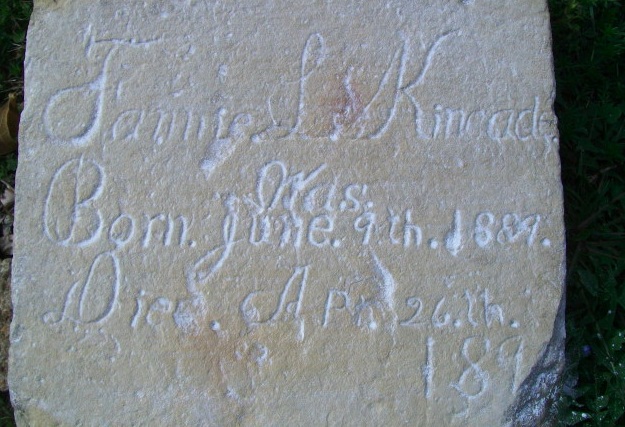 Fannie L. Kincade.
Was.
Born. June. 9th. 1889.
Died. Apr. 26.th.
189